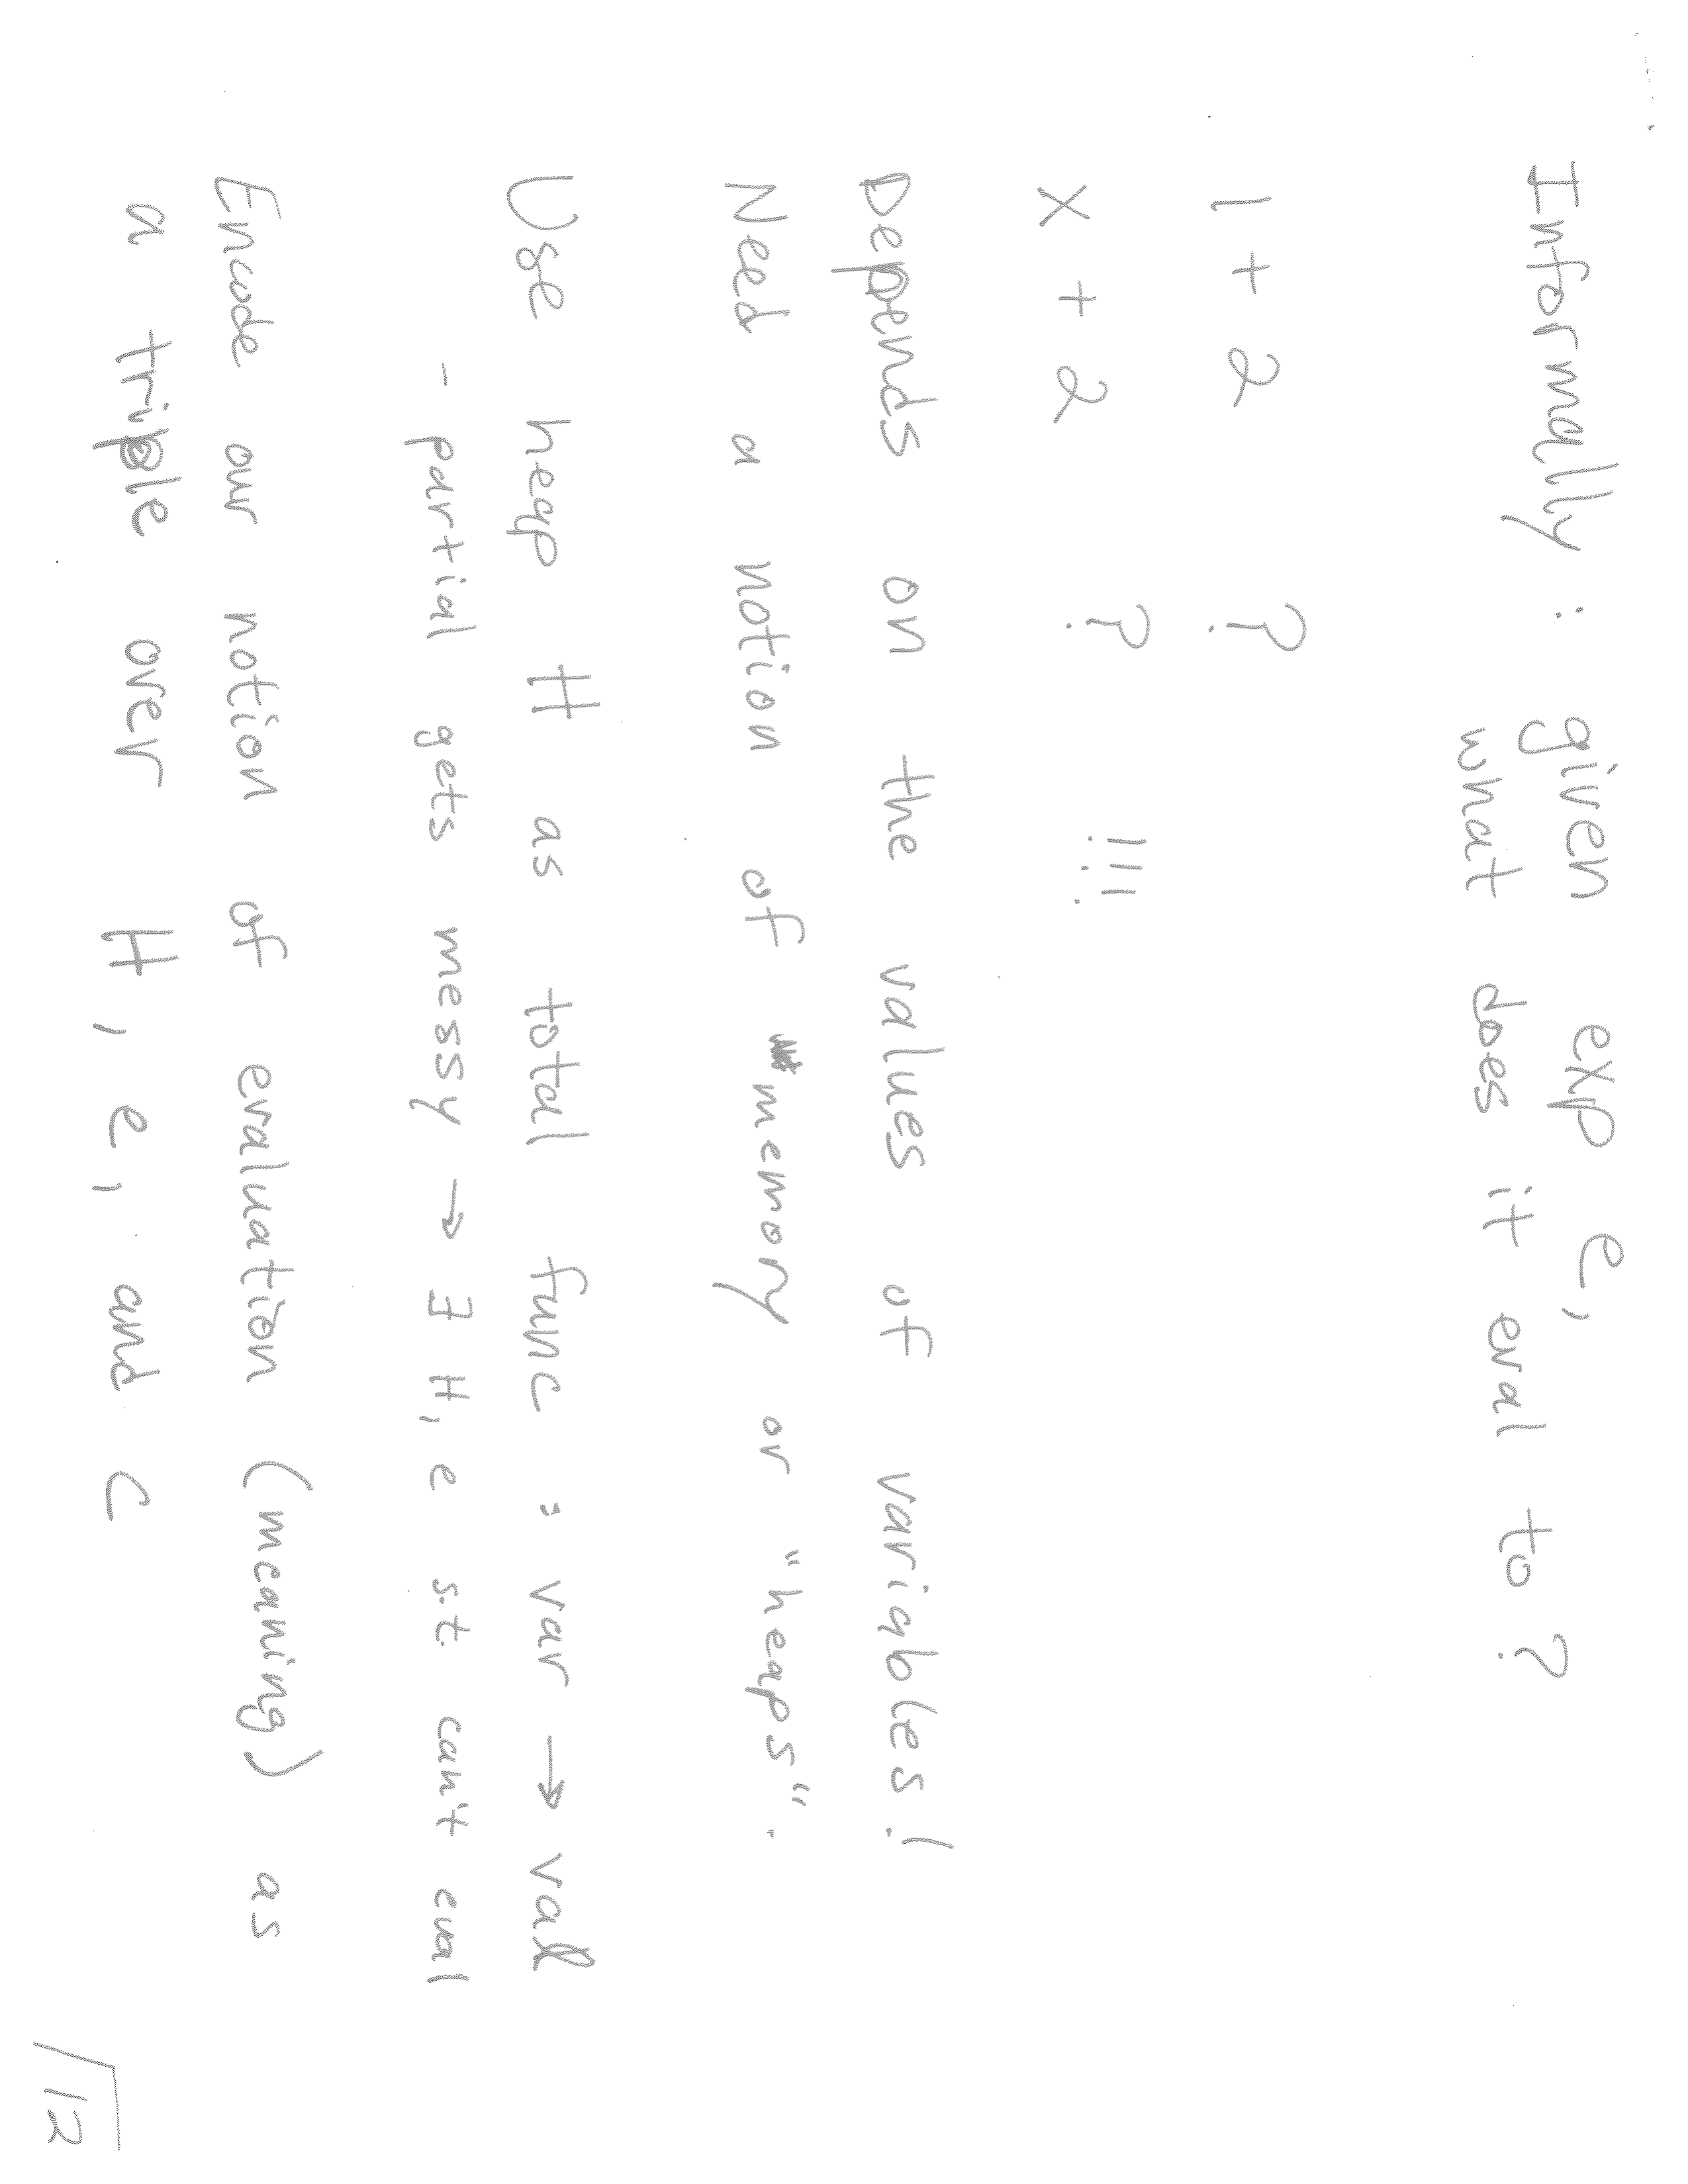 Informally : given exp e,
what does it eval to?
1 + 2 ?
x + 2 ? !!!
Depends on the values of variables!
Need a notion of memory or "heaps".
Use heap H as total func : var → val
- partial gets messy → ∃ H, e s.t. can't eval
Encode our notion of evaluation (meaning) as
a triple over H, e, and c
12